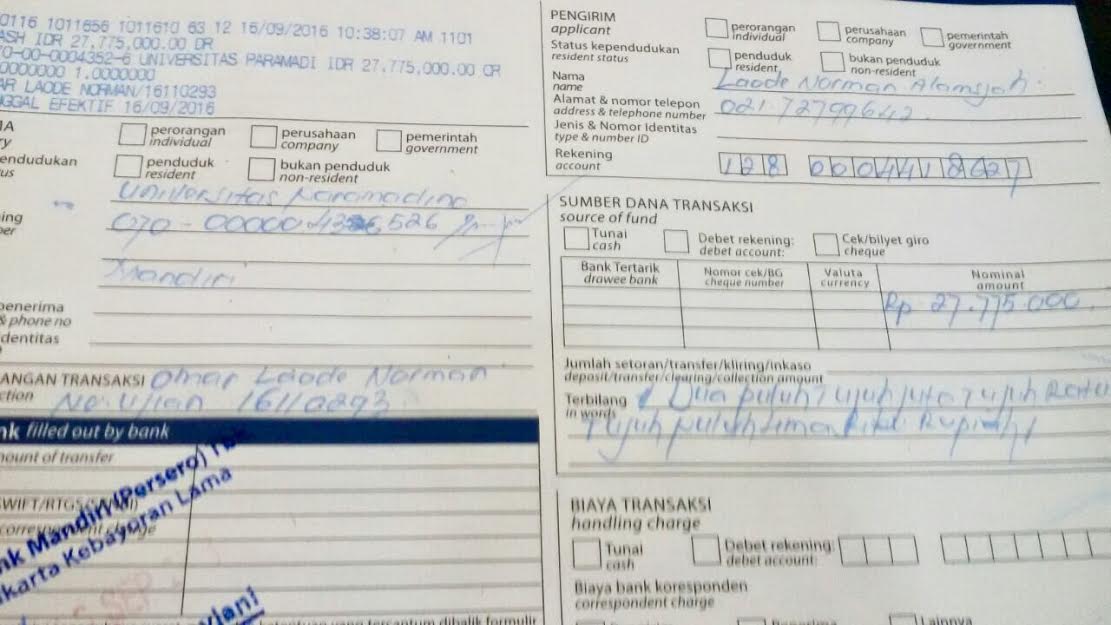 0116 1011656 1011610 63 12 16/09/2016 10:38:07 AM 1101
ASH IDR 27,775,000.00 DR
70-00-0004352-6 UNIVERSITAS PARAMADI IDR 27,775,000.00 CR
0000000 1.0000000
AR LAODE NORMAN/16110293
NGGAL EFEKTIF 16/09/2016
MA
ry
perorangan
individual
perusahaan
company
pemerintah
government
endudukan
tus
penduduk
resident
bukan penduduk
non-resident
Universitas Paramadina
ning
er
Mandiri
penerima
& phone no
dentitas
ANGAN TRANSAKSI Omar Laode Norman
ction
No. Ujian 16110293
nk filled out by bank
mount of transfer
SWIFT/RTGS
correspondent charge
nk Mandiri (Persero) Tbk
karta Kebayoran Lama
SEP
PENGIRIM
applicant
perorangan
individual
perusahaan
company
pemerintah
government
Status kependudukan
resident status
penduduk
resident
bukan penduduk
non-resident
Nama
name
Laode Norman Alamsjah
Alamat & nomor telepon
address & telephone number
021 72799642
Jenis & Nomor Identitas
type & number ID
Rekening
account
128
SUMBER DANA TRANSAKSI
source of fund
Tunai
cash
Debet rekening:
debet account:
Cek/bilyet giro
cheque
Bank Tertarik
drawee bank
Nomor cek/BG
cheque number
Valuta
currency
Nominal
amount
Rp 27.775.000
Jumlah setoran/transfer/kliring/inkaso
deposit/transfer/clearing/collection amount
Terbilang
in words
Dua puluh Tujuh juta Tujuh Ratus
Tujuh puluh Lima Ribu Rupiah
BIAYA TRANSAKSI
handling charge
Tunai
cash
Debet rekening:
debet account:
Biaya bank koresponden
correspondent charge
Lainnya